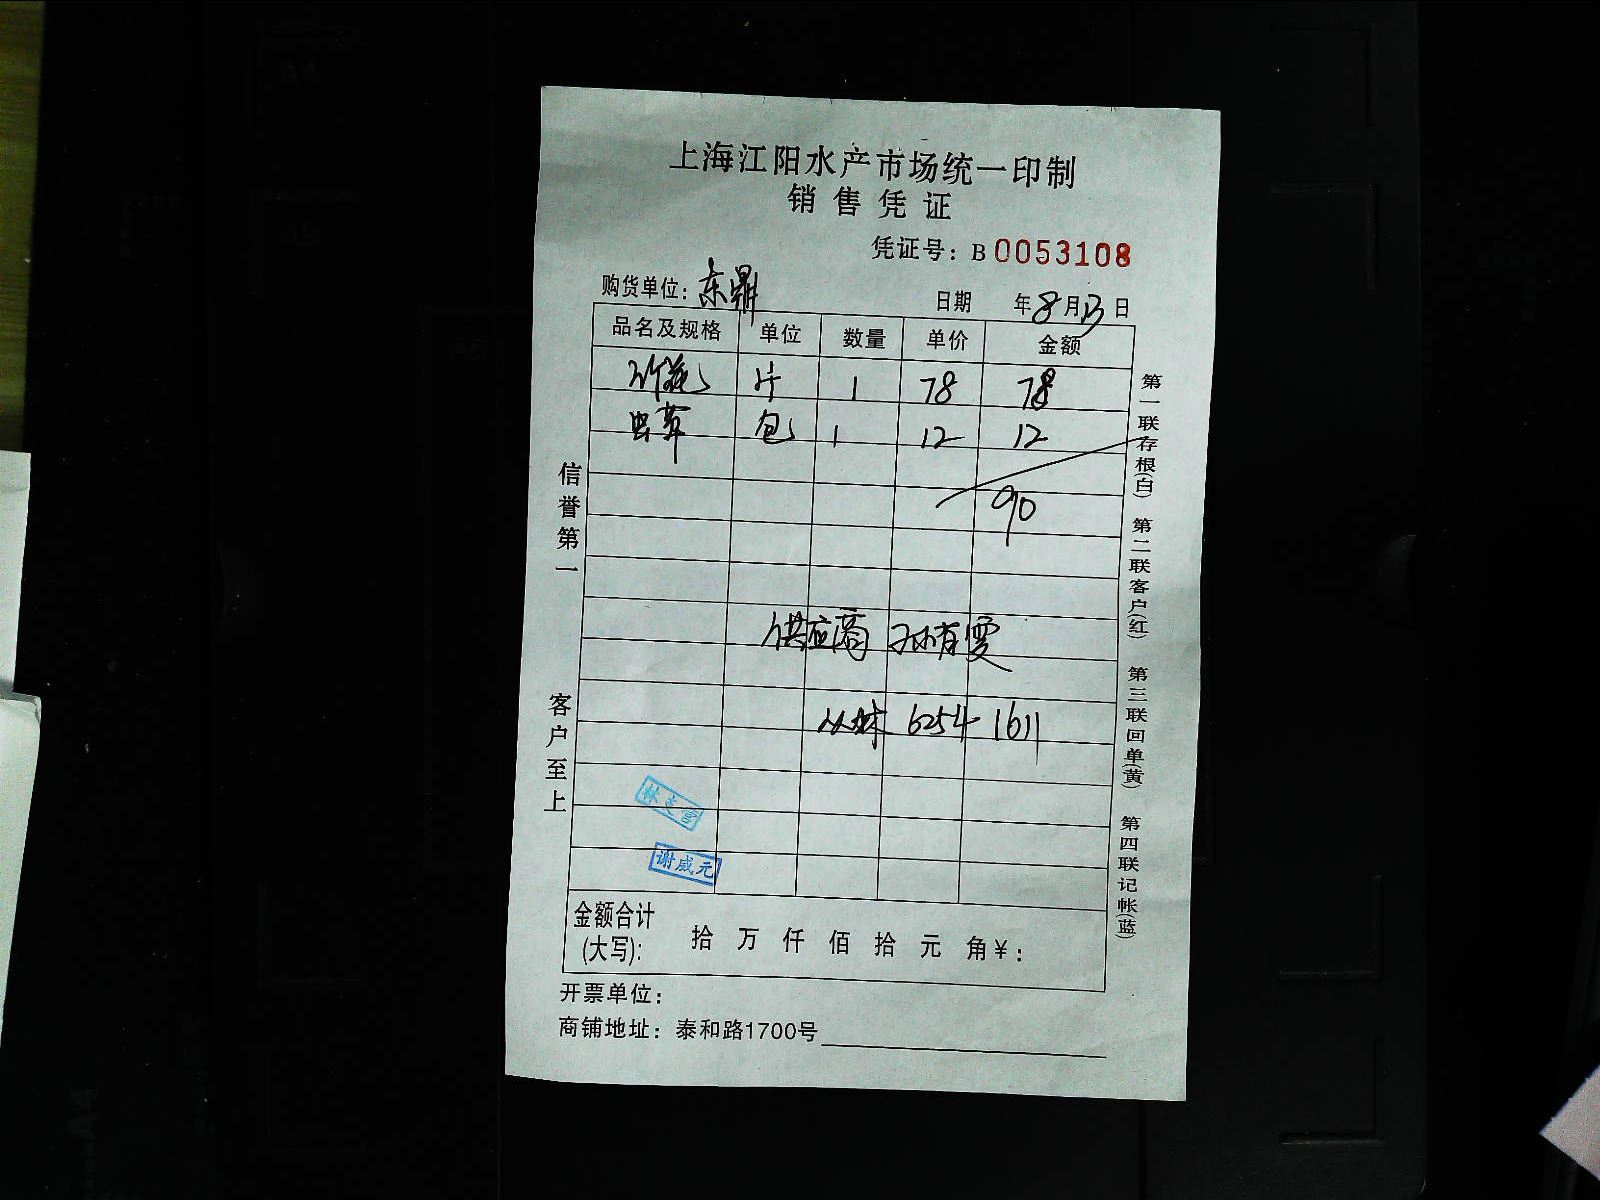 上海江阳水产市场统一印制
销售凭证
凭证号：B 0053108
购货单位：东鼎
日期 年8月13日
品名及规格 单位 数量 单价 金额
斤 1 78 78
虫草 包 1 12 12
90
供应商 孙有雯
6254 1611
林志雪
谢咸元
金额合计
(大写): 拾 万 仟 佰 拾 元 角 ¥:
开票单位：
商铺地址：泰和路1700号
信誉第一
客户至上
第一联存根(白) 第二联客户(红) 第三联回单(黄) 第四联记帐(蓝)